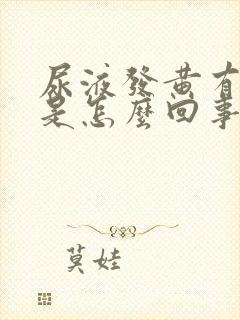 尿液發黃有
是怎麼回事
莫娃